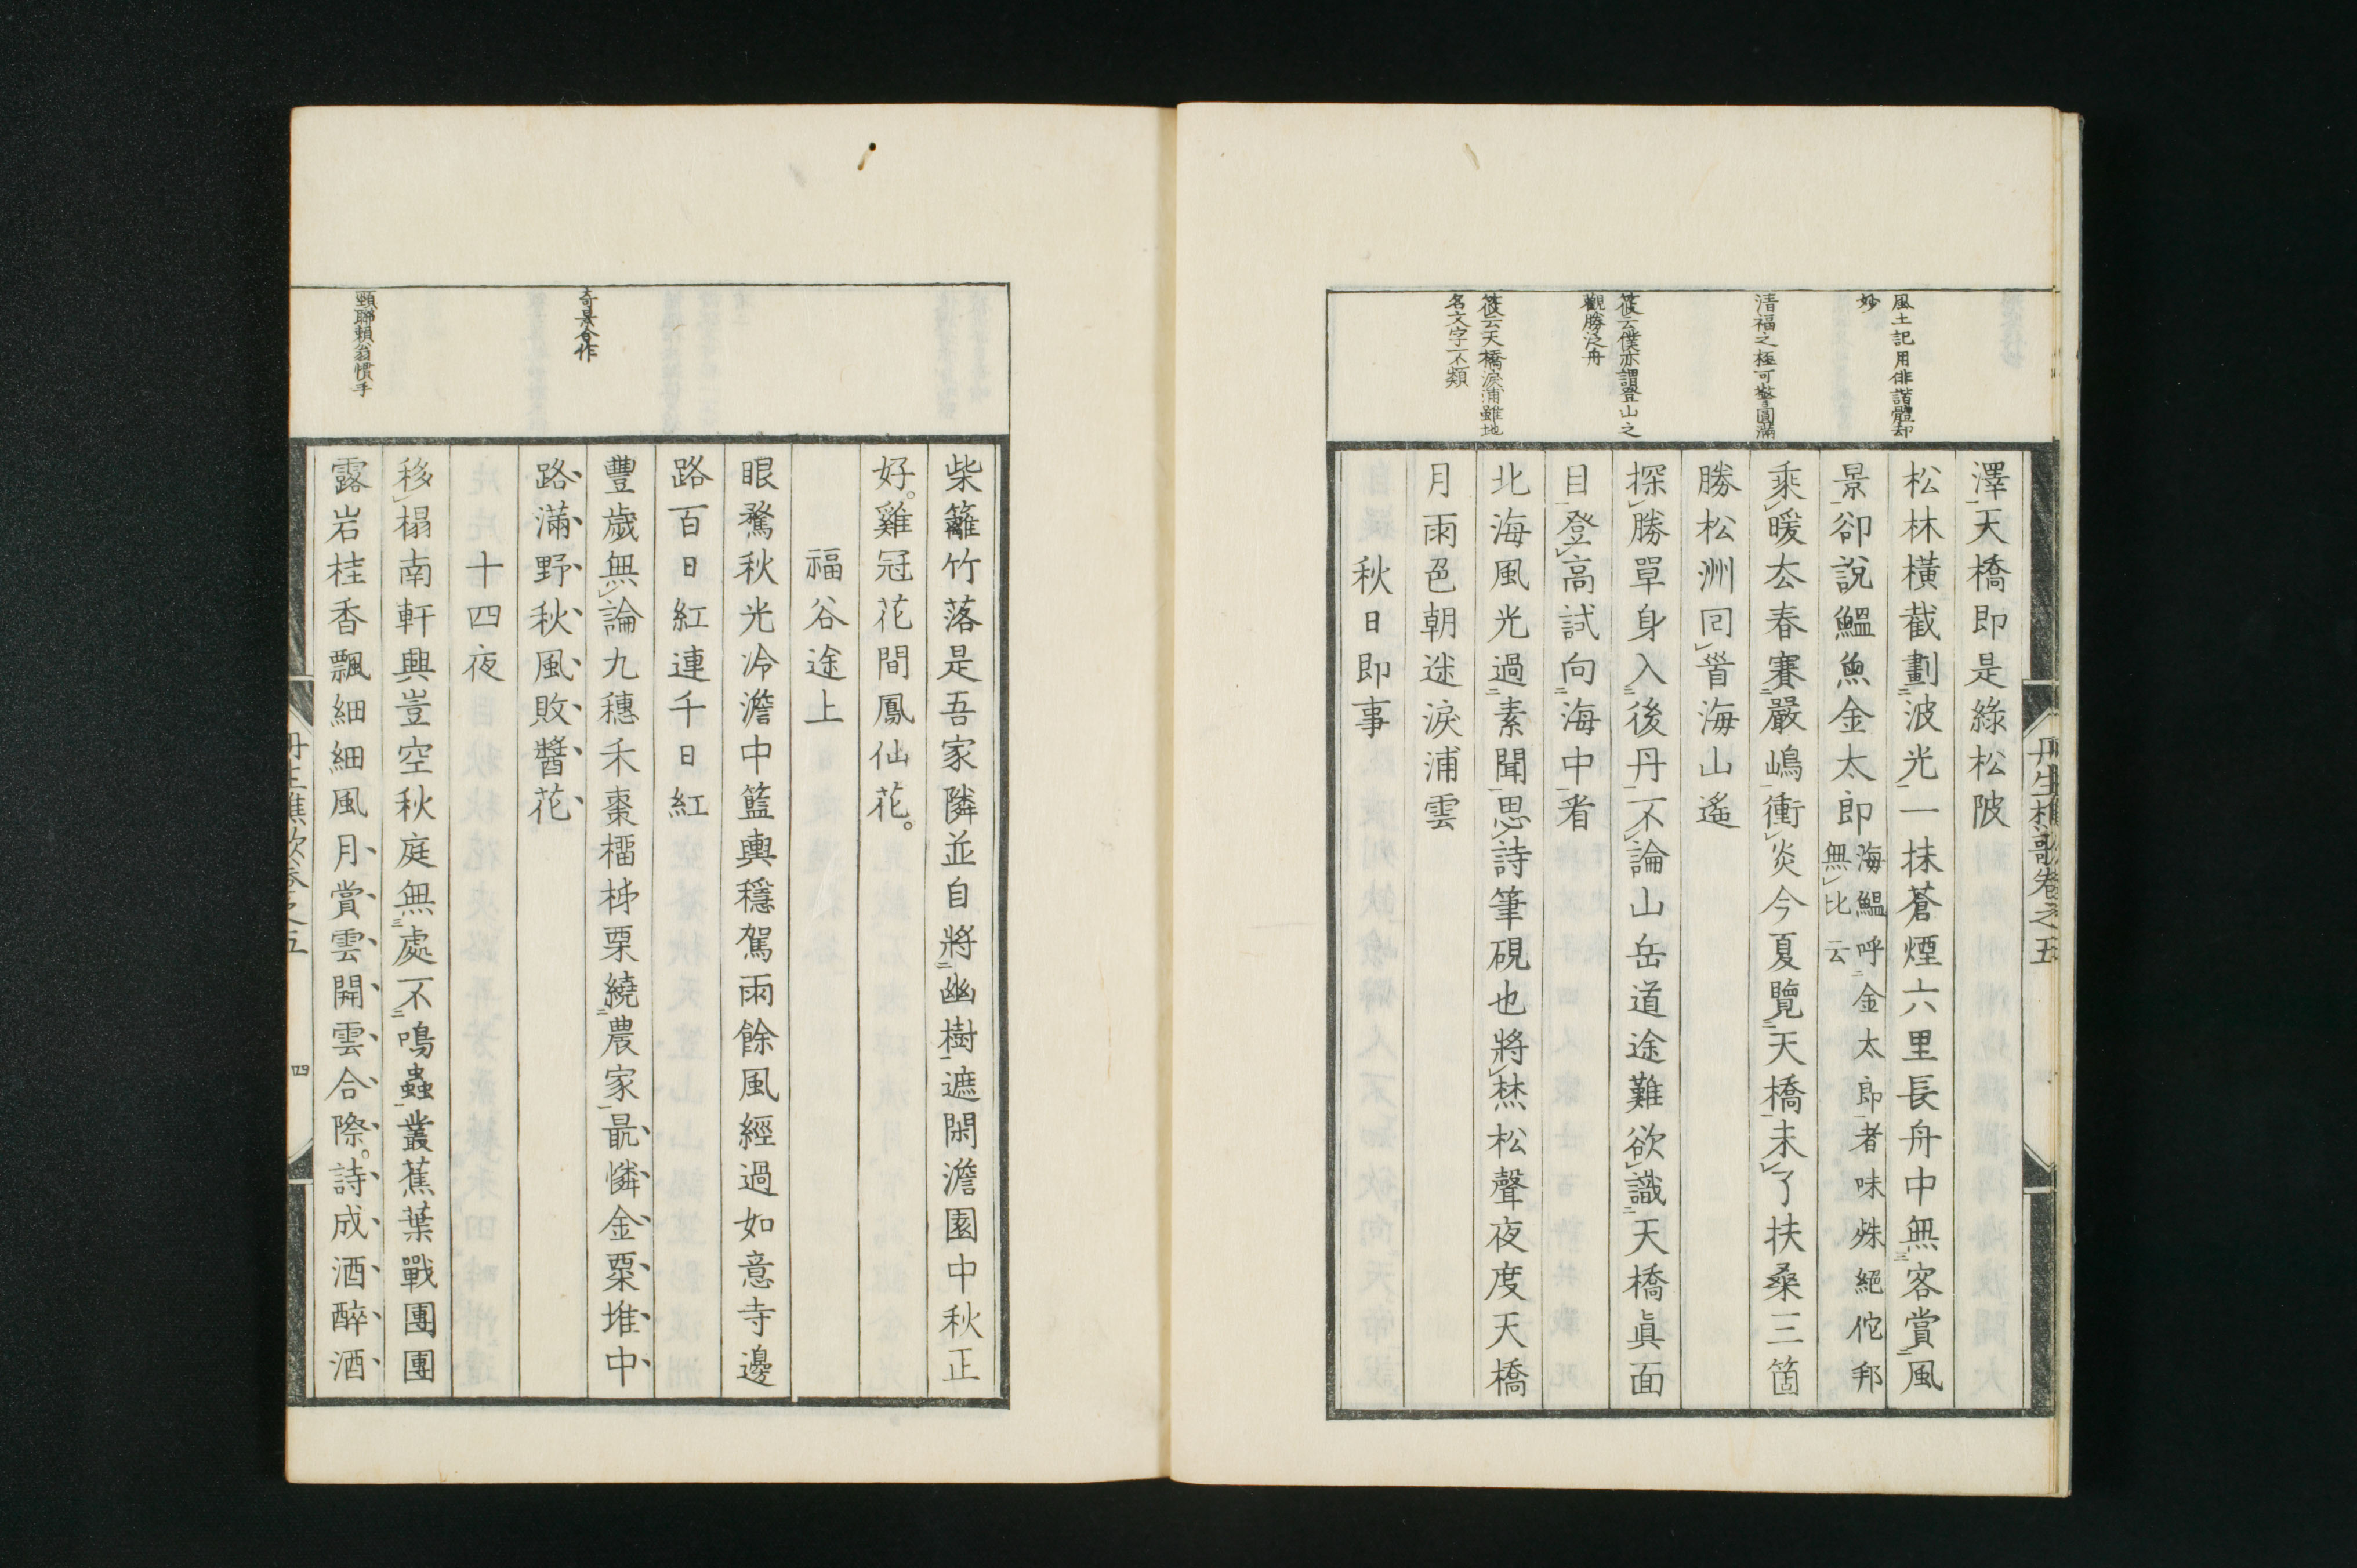 風土記用俳諧體却
妙
清福之極可聲圓滿
筱云僕亦謂登山之
觀勝泛舟
筱云天橋淚浦雖地
名文字不類
澤天橋即是綠松陂
松林橫截劃波光一抹蒼煙六里長舟中無客賞風
景卻說鰮魚金太郎
海鰮呼金太郎者味殊絕佗邦
無比云
乘暖厺春賽嚴嶋衝炎今夏覽天橋未了扶桑三箇
勝松洲回首海山遙
探勝單身入後丹不論山岳道途難欲識天橋眞面
目登高試向海中看
北海風光過素聞思詩筆硯也將焚松聲夜度天橋
月雨邑朝迷淚浦雲
秋日即事
丹生樵歌卷之五
奇景合作
頸聯賴翁慣手
柴籬竹落是吾家隣並自將幽樹遮閑澹園中秋正
好雞冠花間鳳仙花
福谷途上
眼騖秋光冷澹中籃輿穩駕雨餘風經過如意寺邊
路百日紅連千日紅
豐歲無論九穗禾棗榴柹栗繞農家最憐金粟堆中
路滿野秋風敗醬花
十四夜
移榻南軒興豈空秋庭無處不鳴蟲叢蕉葉戰團團
露岩桂香飄細細風月賞雲開雲合際詩成酒醉酒
丹生樵歌卷之五
四